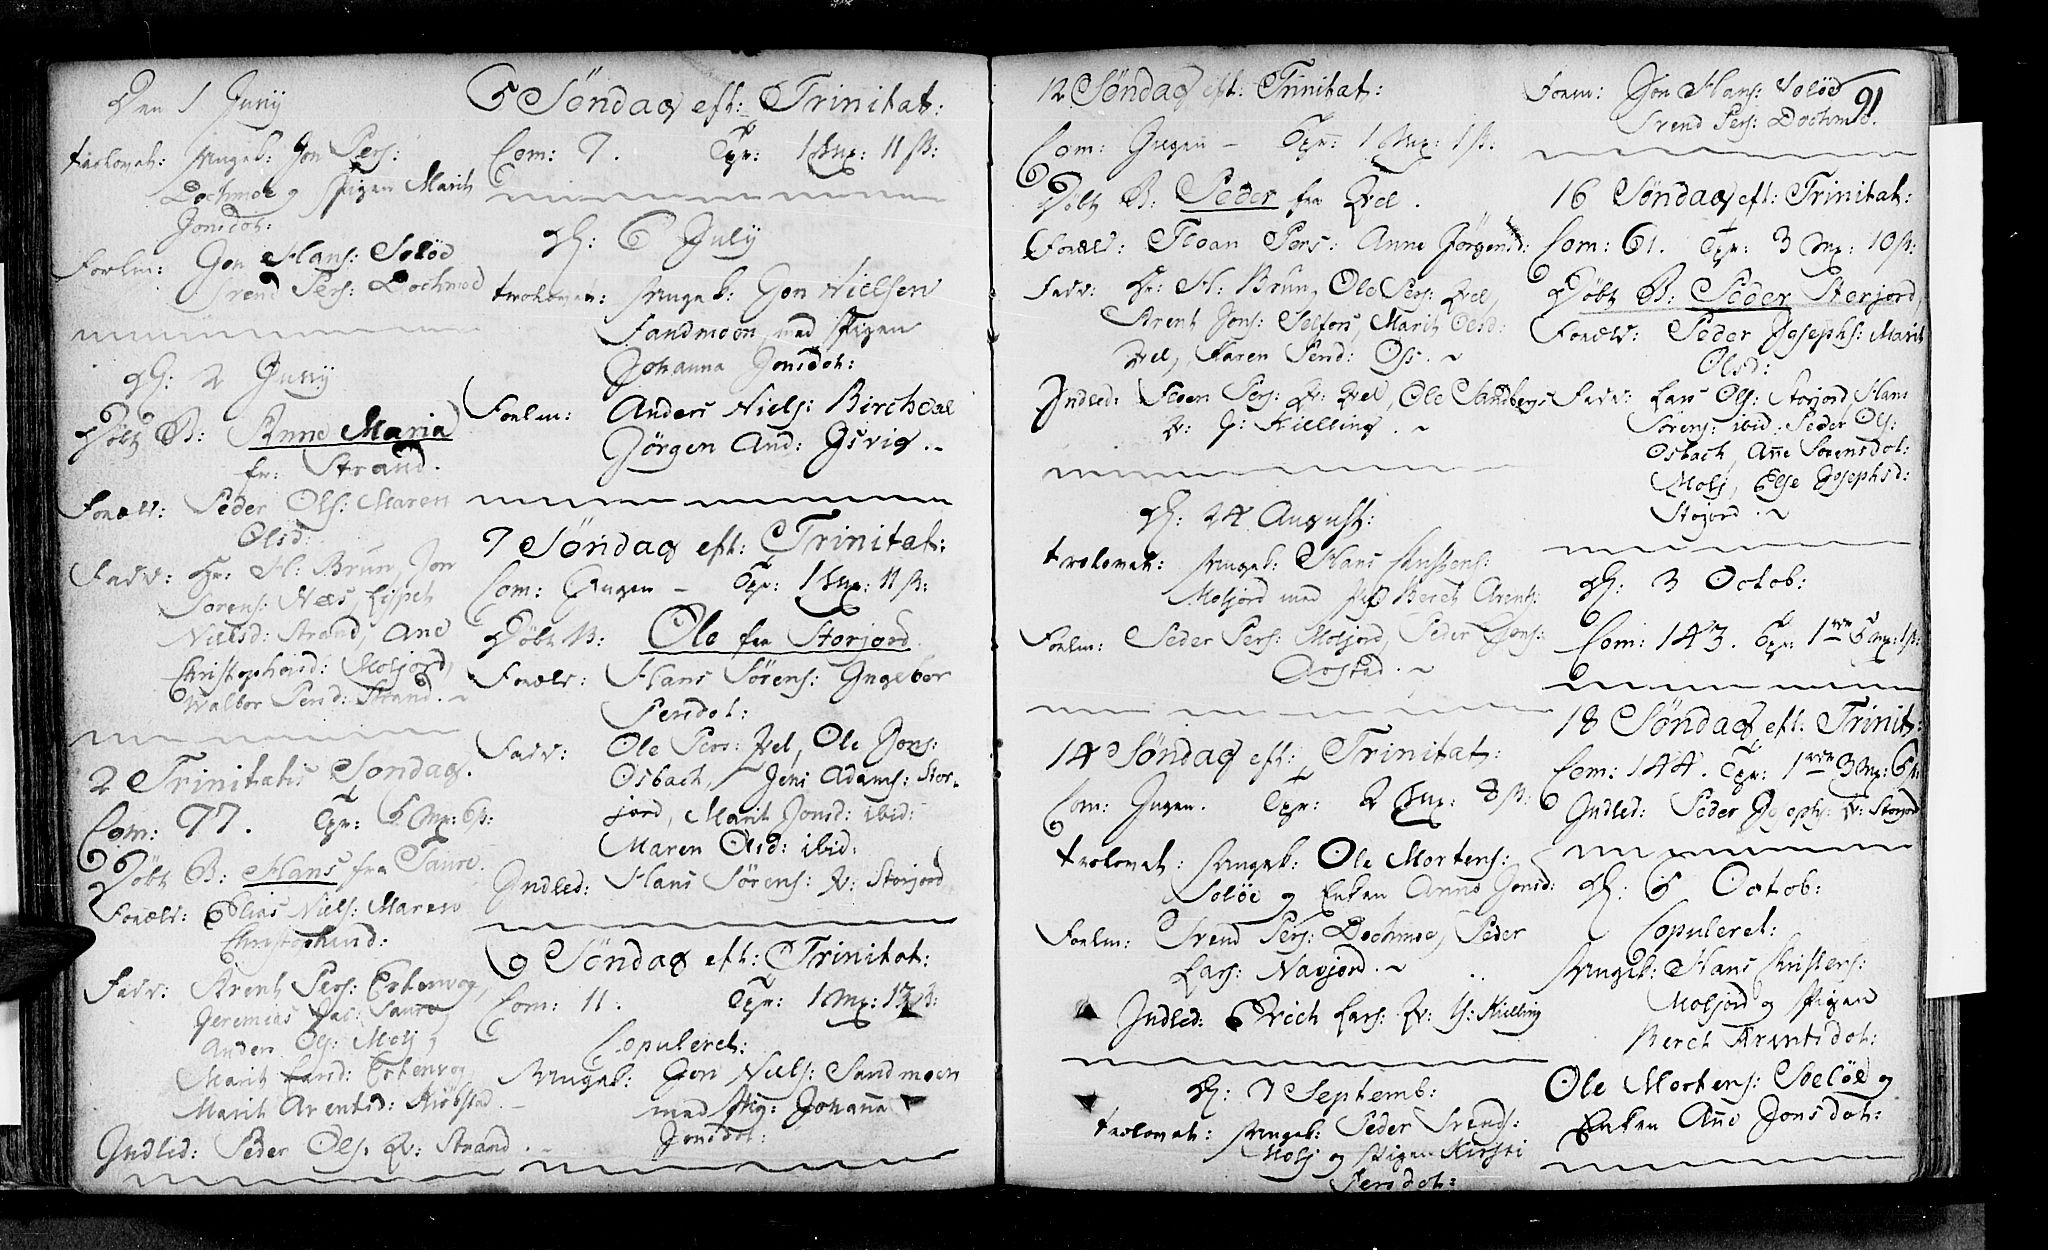 Den 1 Juny
trolovet: Ungek: Jon Pers:
Dochmoe og Pigen Marit
Jonsdot:
Forlm: Jon Hans: Soløe
Svend Pers: Dochmoe
d: 2 Juny
Døbt B: Anne Maria
fr: Strand.
Foræld: Peder Ols: Maren
Olsd:
Fadd: Hr: H: Brun, Jon
Sørens: Næs, Lisbet
Nielsd: Strand, Ane
Christophersd: Moljord,
Walbor Persd: Strand.
2 Trinitatis Søndag.
Com: 77. Tpr: 5 Mk: 6 ß:
Døbt B: Hans fra
Foræld: Elias Niels: Maren
Christophersd:
Fadd: Arent Pers: Estenvog,
Jeremias Jac:
Anders Ols: Molj,
Marit Larsd: Estenvog
Marit Arentsd: Kiøbstad.
Indled: Peder Ols: K: Strand.
5 Søndag eft: Trinitat:
Com: 7. Tpr: 1 Mk: 11 ß:
d: 6 July
trolovet: Ungek: Jon Nielsen
Sandmoen, med Pigen
Johanna Jonsdot:
Forlm: Anders Niels: Birchdal
Jørgen And: Isvig.
7 Søndag eft: Trinitat:
Com: Ingen – Tpr: 1 Mk: 11 ß:
Døbt B: Ole fra Storjord
Foræld: Hans Sørens: Ingebor
Persdot:
Fadd: Ole Pers: Qvel, Ole Jons:
Osbach, Jens Adams: Stor-
jord, Marit Jonsd: ibid:
Maren Olsd: ibid:
Indled: Hans Sørens: K: Storjord
9 Søndag eft: Trinitat:
Com: 11. Tpr: 1 Mk: 13 ß:
Copuleret:
Ungek: Jon Niels: Sandmoen
med Pig: Johanna
Jonsdot:
12 Søndag eft: Trinitat:
Com: Ingen – Tpr: 1 Mk: 1 ß.
Døbt B: Peder fra Qvel.
Foræld: Floan Pers: Anne Jørgensd:
Fadv: Hr: H: Brun, Ole Pers: Qvel,
Arent Jons: Selfors, Marit Olsd:
Qvel, Karen Persd: Os.
Indled: Floen Pers: K: Qvel, Ole Sandbergs
K: G: Kielling.
d: 24 August:
trolovet: Ungek: Hans Christens:
Moljord med Pig: Beret Arents:
Forlm: Peder Pers: Moljord, Peder Jons:
Aostad.
14 Søndag eft: Trinitat:
Com: Ingen. Tpr: 2 Mk: 8 ß:
trolovet: Ungek: Ole Mortens:
Soløe og Enken Anne Jonsd:
Forlm: Svend Pers: Dochmoe, Peder
Lars: Navjord.
Indled: Erich Lars: K: Y: Kielling
d: 7 Septemb:
trolovet: Ungek: Peder Svends:
Molj og Pigen Kirsti
Persdot:
Forlm: Jon Hans: Soløe
Svend Pers: Dochmo.
91
16 Søndag eft: Trinitat:
Com: 61. Tpr: 3 Mk: 10 ß:
Døbt B: Peder Storjord,
Foræld: Peder Josephs: Marit
Olsd:
Fadd: Lars Ols: Storjord, Hans
Sørens: ibid. Peder Ols:
Osbach, Anne Sørensdot:
Molj, Else Josephsd:
Stojord.
d: 3 Octob:
Com: 143. Tpr: 1 5 Mk: 1 ß:
18 Søndag eft: Trinit:
Com: 144. Tpr: 1 3 Mk: 6 ß:
Indled: Peder Josephs: K: Storjord
d: 5 Octob:
Copuleret:
Ungek: Hans Christens:
Moljord og Pigen
Beret Arentsdot:
Ole Mortens: Soeløe og
Enken Anne Jonsdot: